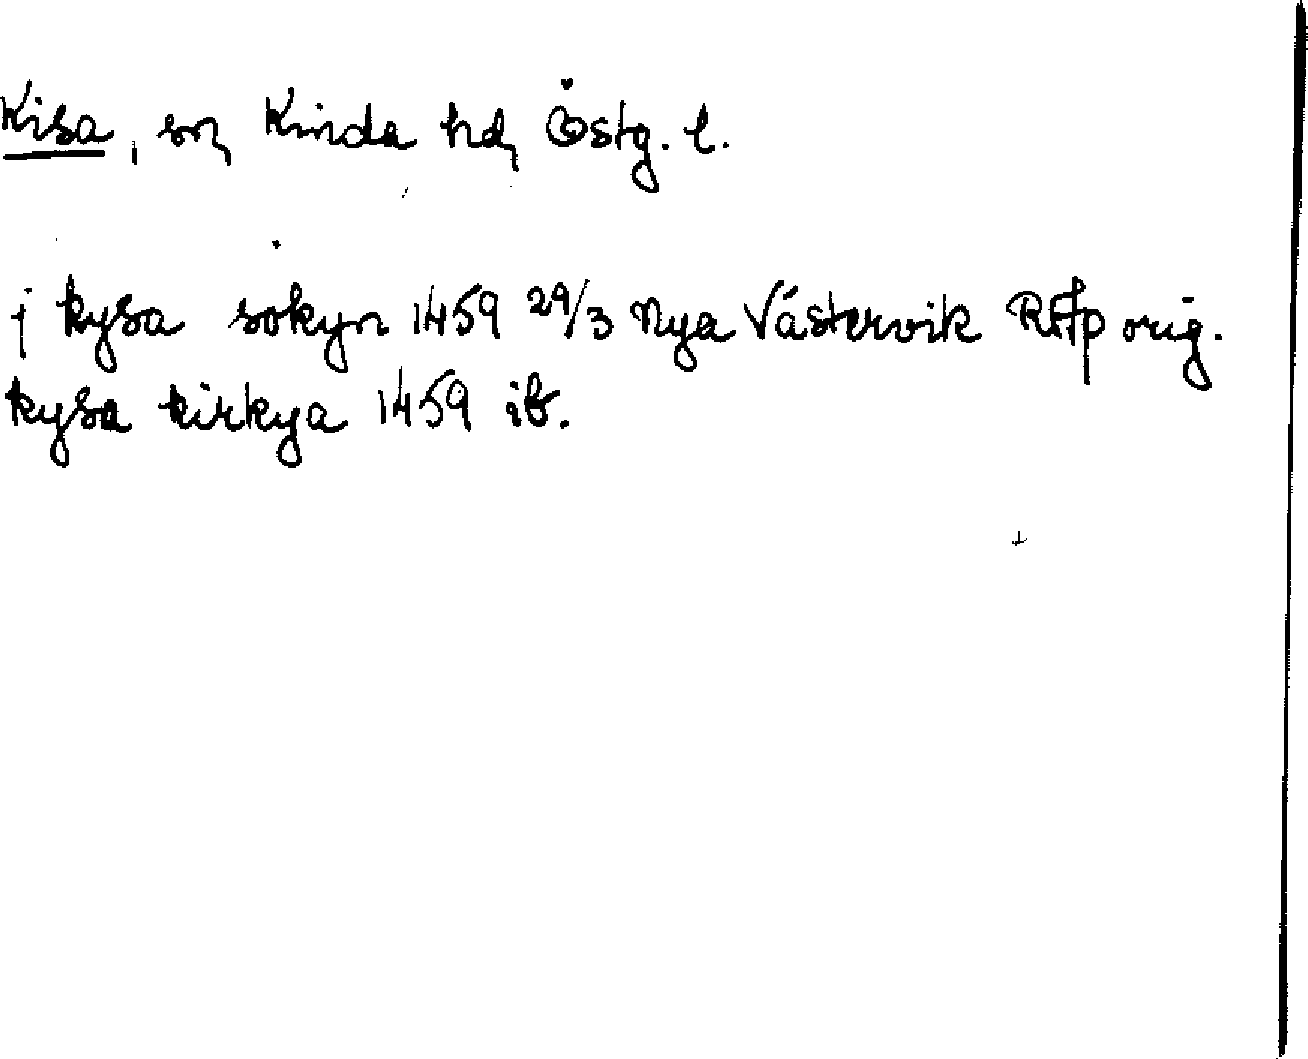 Kisa, sn, Kinda hd, Östg. l.
j kysa sokyn 1459 29/3 Nya Västervik RAp orig.
kysa kirkya 1459 ib.